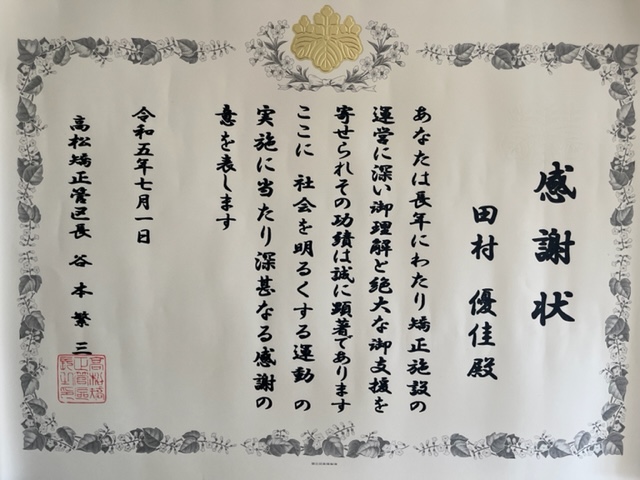 感謝状
田村 優佳 殿
あなたは長年にわたり矯正施設の
運営に深い御理解と絶大な御支援を
寄せられその功績は誠に顕著であります
ここに 社会を明るくする運動 の
実施に当たり深甚なる感謝の
意を表します
令和五年七月一日
高松矯正管区長 谷本繁三